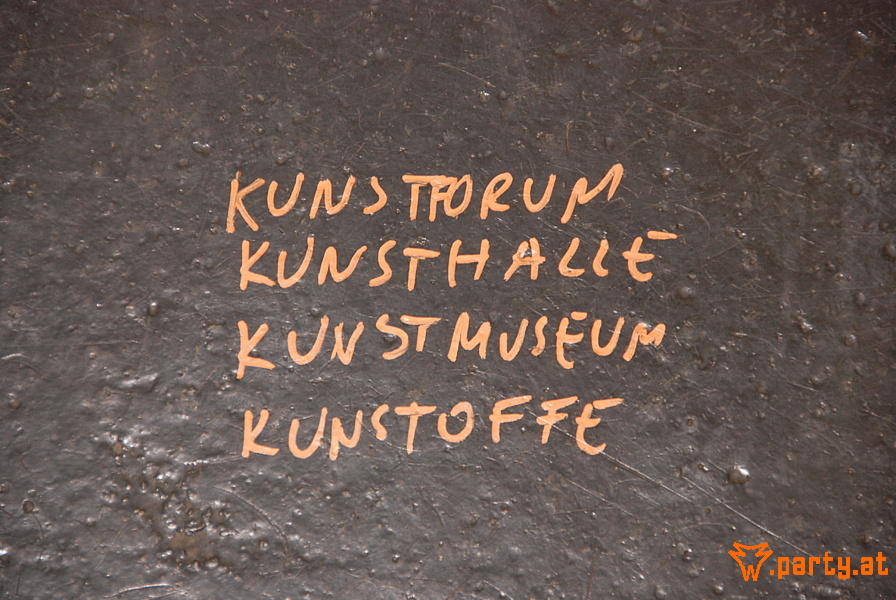 KUNSTFORUM
KUNSTHALLE
KUNSTMUSEUM
KUNSTOFFE
W.party.at